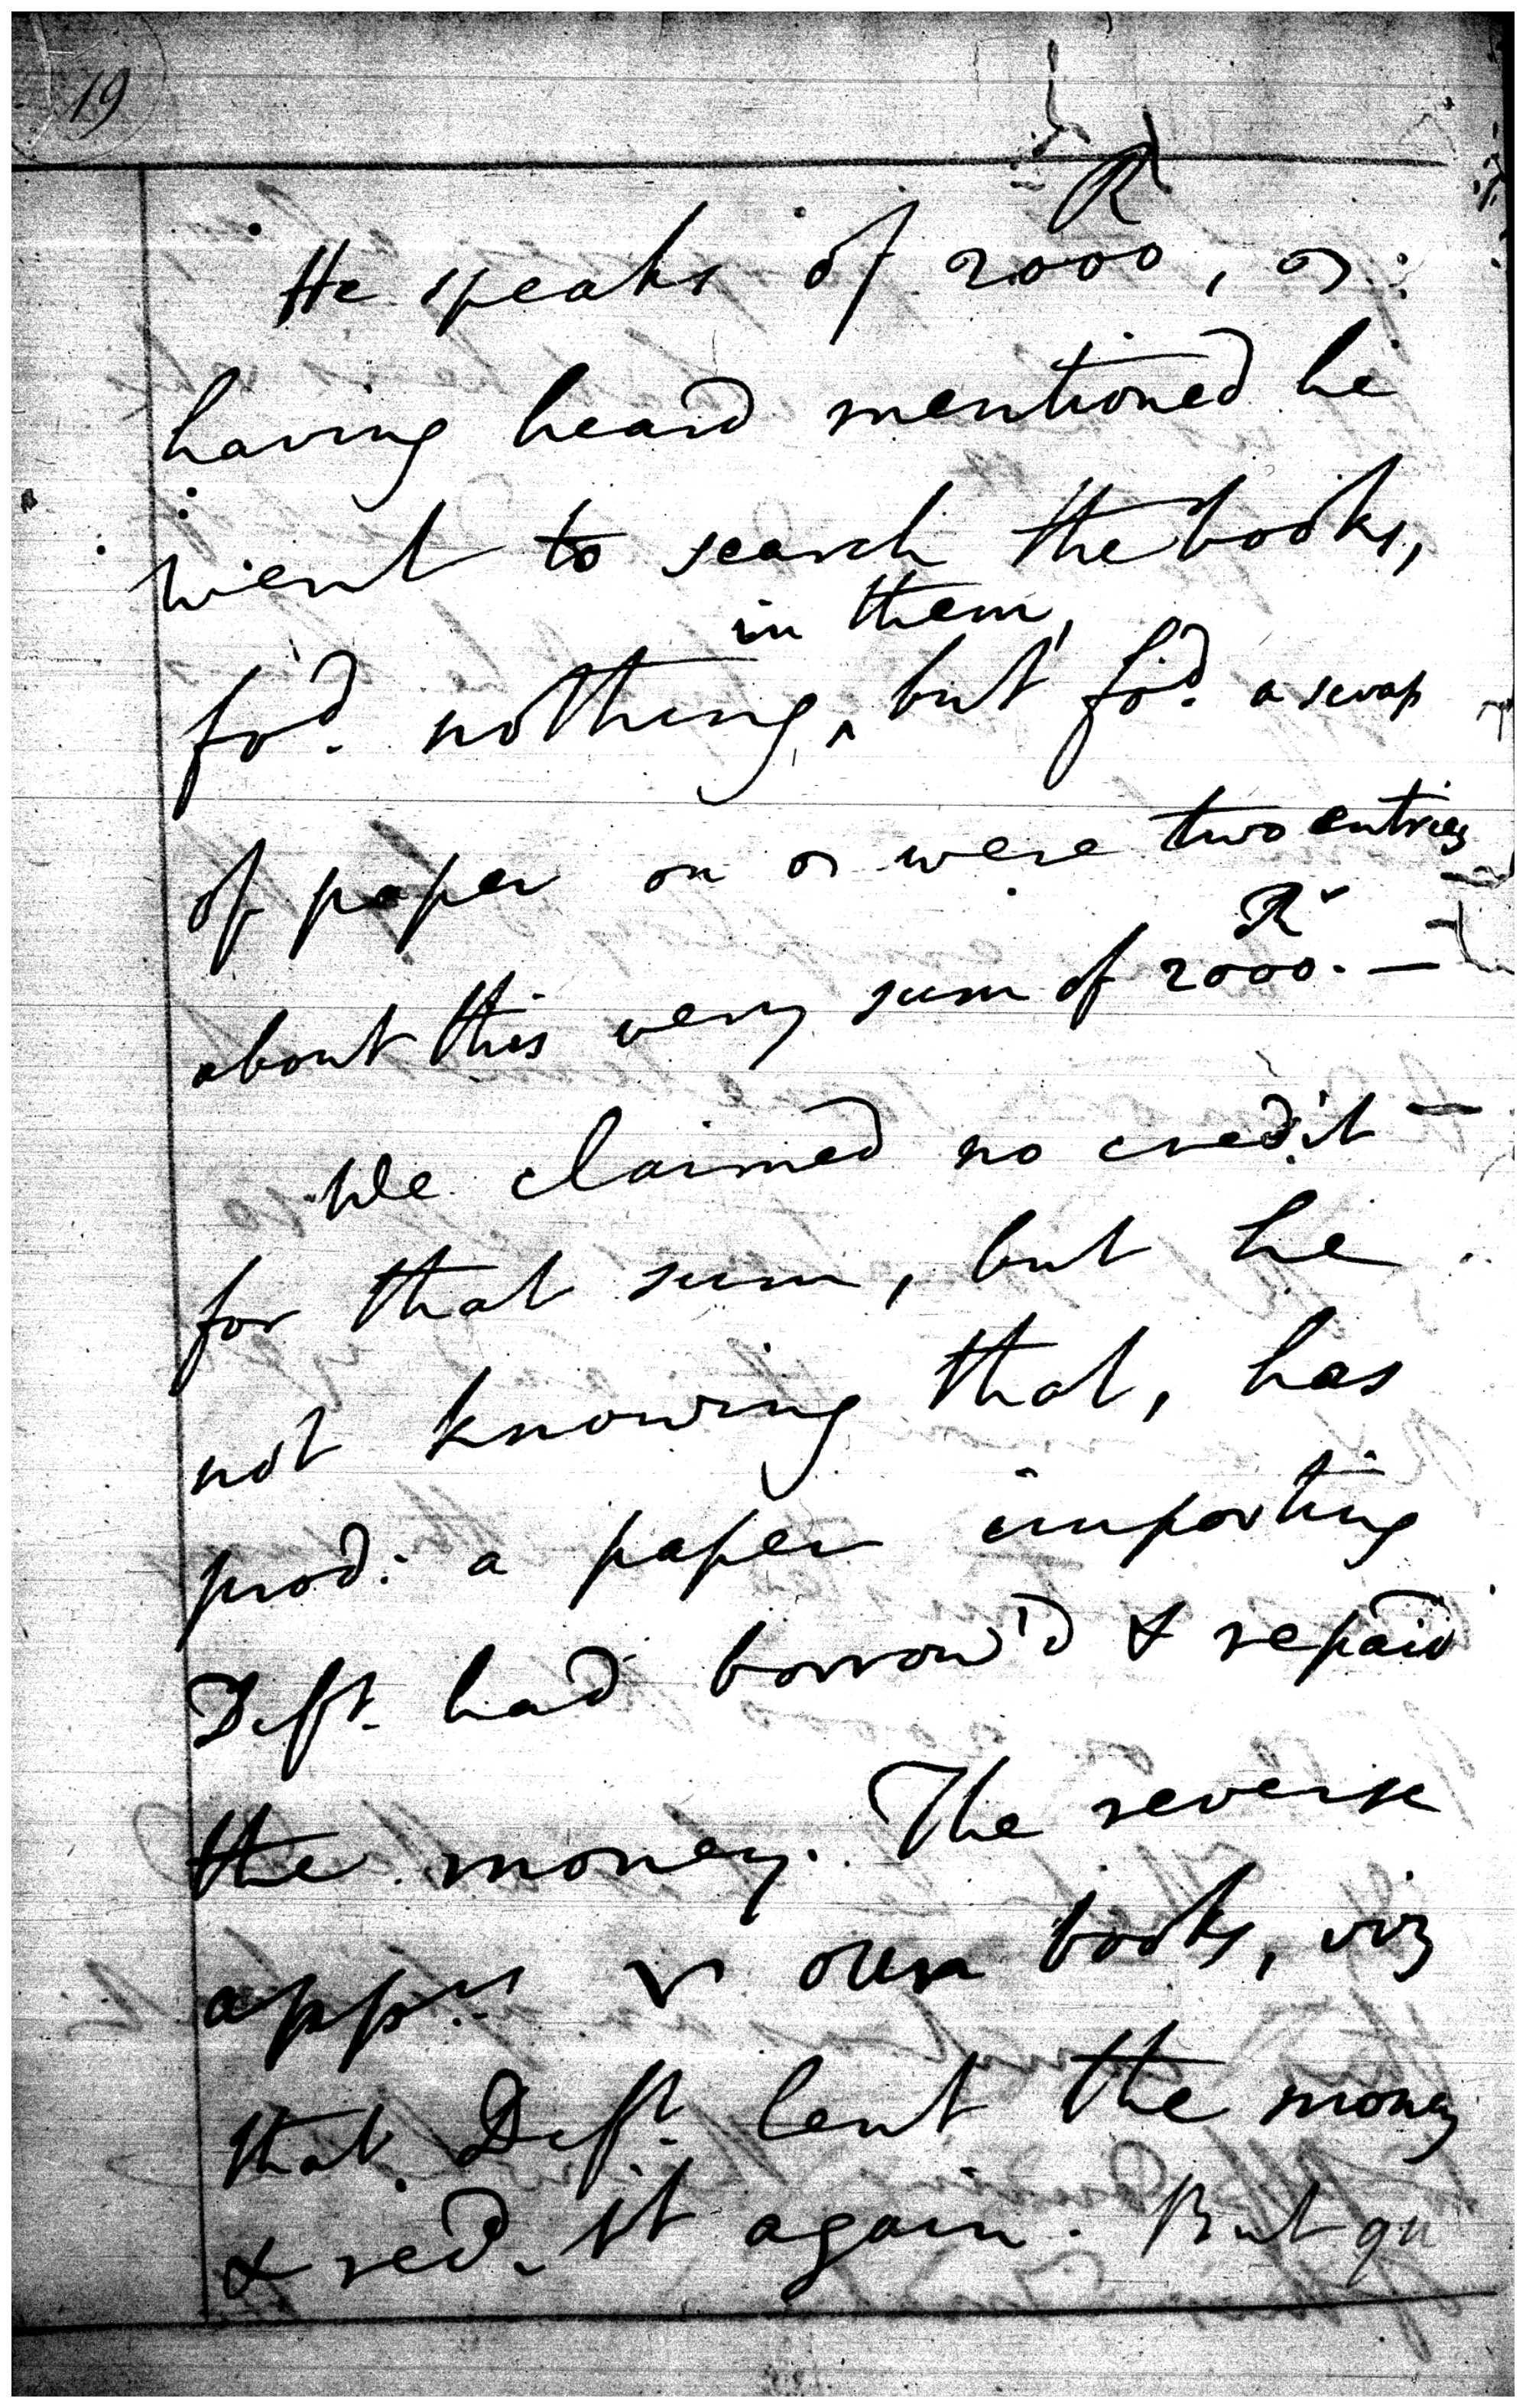 19
R
He speaks of 2000, or
having heard mentioned he
went to search the books,
in them,
fo'd. nothing ‸ but fo'd. a scrap
of paper on or were two entries
R
about this very sum of 2000. —
We claimed no credit —
for that sum, but he
not knowing that, has
prod: a paper importing
Deft. had borrow'd & repaid
the money. The reverse
books, viz
that Deft. lent the money
& recd. it again. But qu